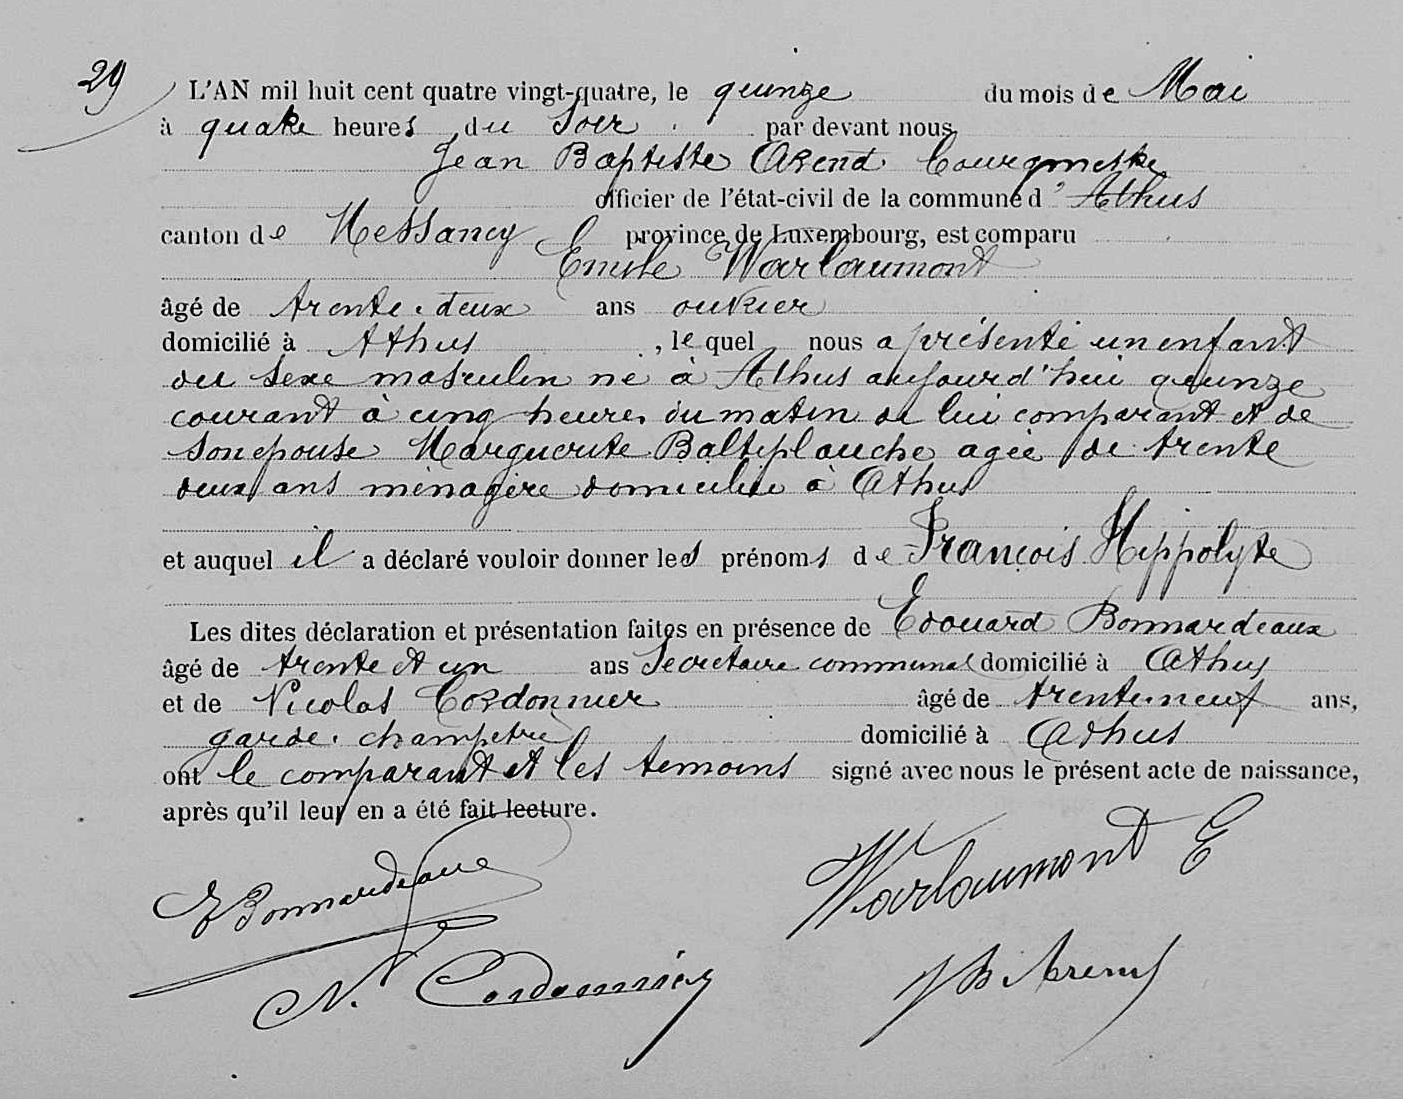 29
L'AN mil huit cent quatre vingt-quatre, le quinze du mois de Mai
à quatre heures du Soir. par devant nous,
Jean Baptiste Arend. Bourgmestre
officier de l'état-civil de la commune d'Athus
canton de Messancy province de Luxembourg, est comparu
Emile Warlaumont
âgé de trente-deux ans ouvrier
domicilié à Athus, le quel nous a présenté un enfant
du sexe masculin né à Athus aujourd'hui quinze
courant à cinq heures du matin de lui comparant et de
son epouse Marguerite agée de trente
deux ans ménagère domiciliée à Athus
et auquel il a déclaré vouloir donner les prénoms de François Hippolyte
Les dites déclaration et présentation faites en présence de Edouard Bonnardeaux
âgé de trente et un ans Secretaire communal domicilié à Athus
et de Nicolas Cordonnier âgé de trente-neuf ans,
garde-champetre domicilié à Athus
ont le comparant et les temoins signé avec nous le présent acte de naissance,
après qu'il leur en a été fait lecture.
E Bonnardeaux
Warlaumont E
N. Cordonnier
JB Arend